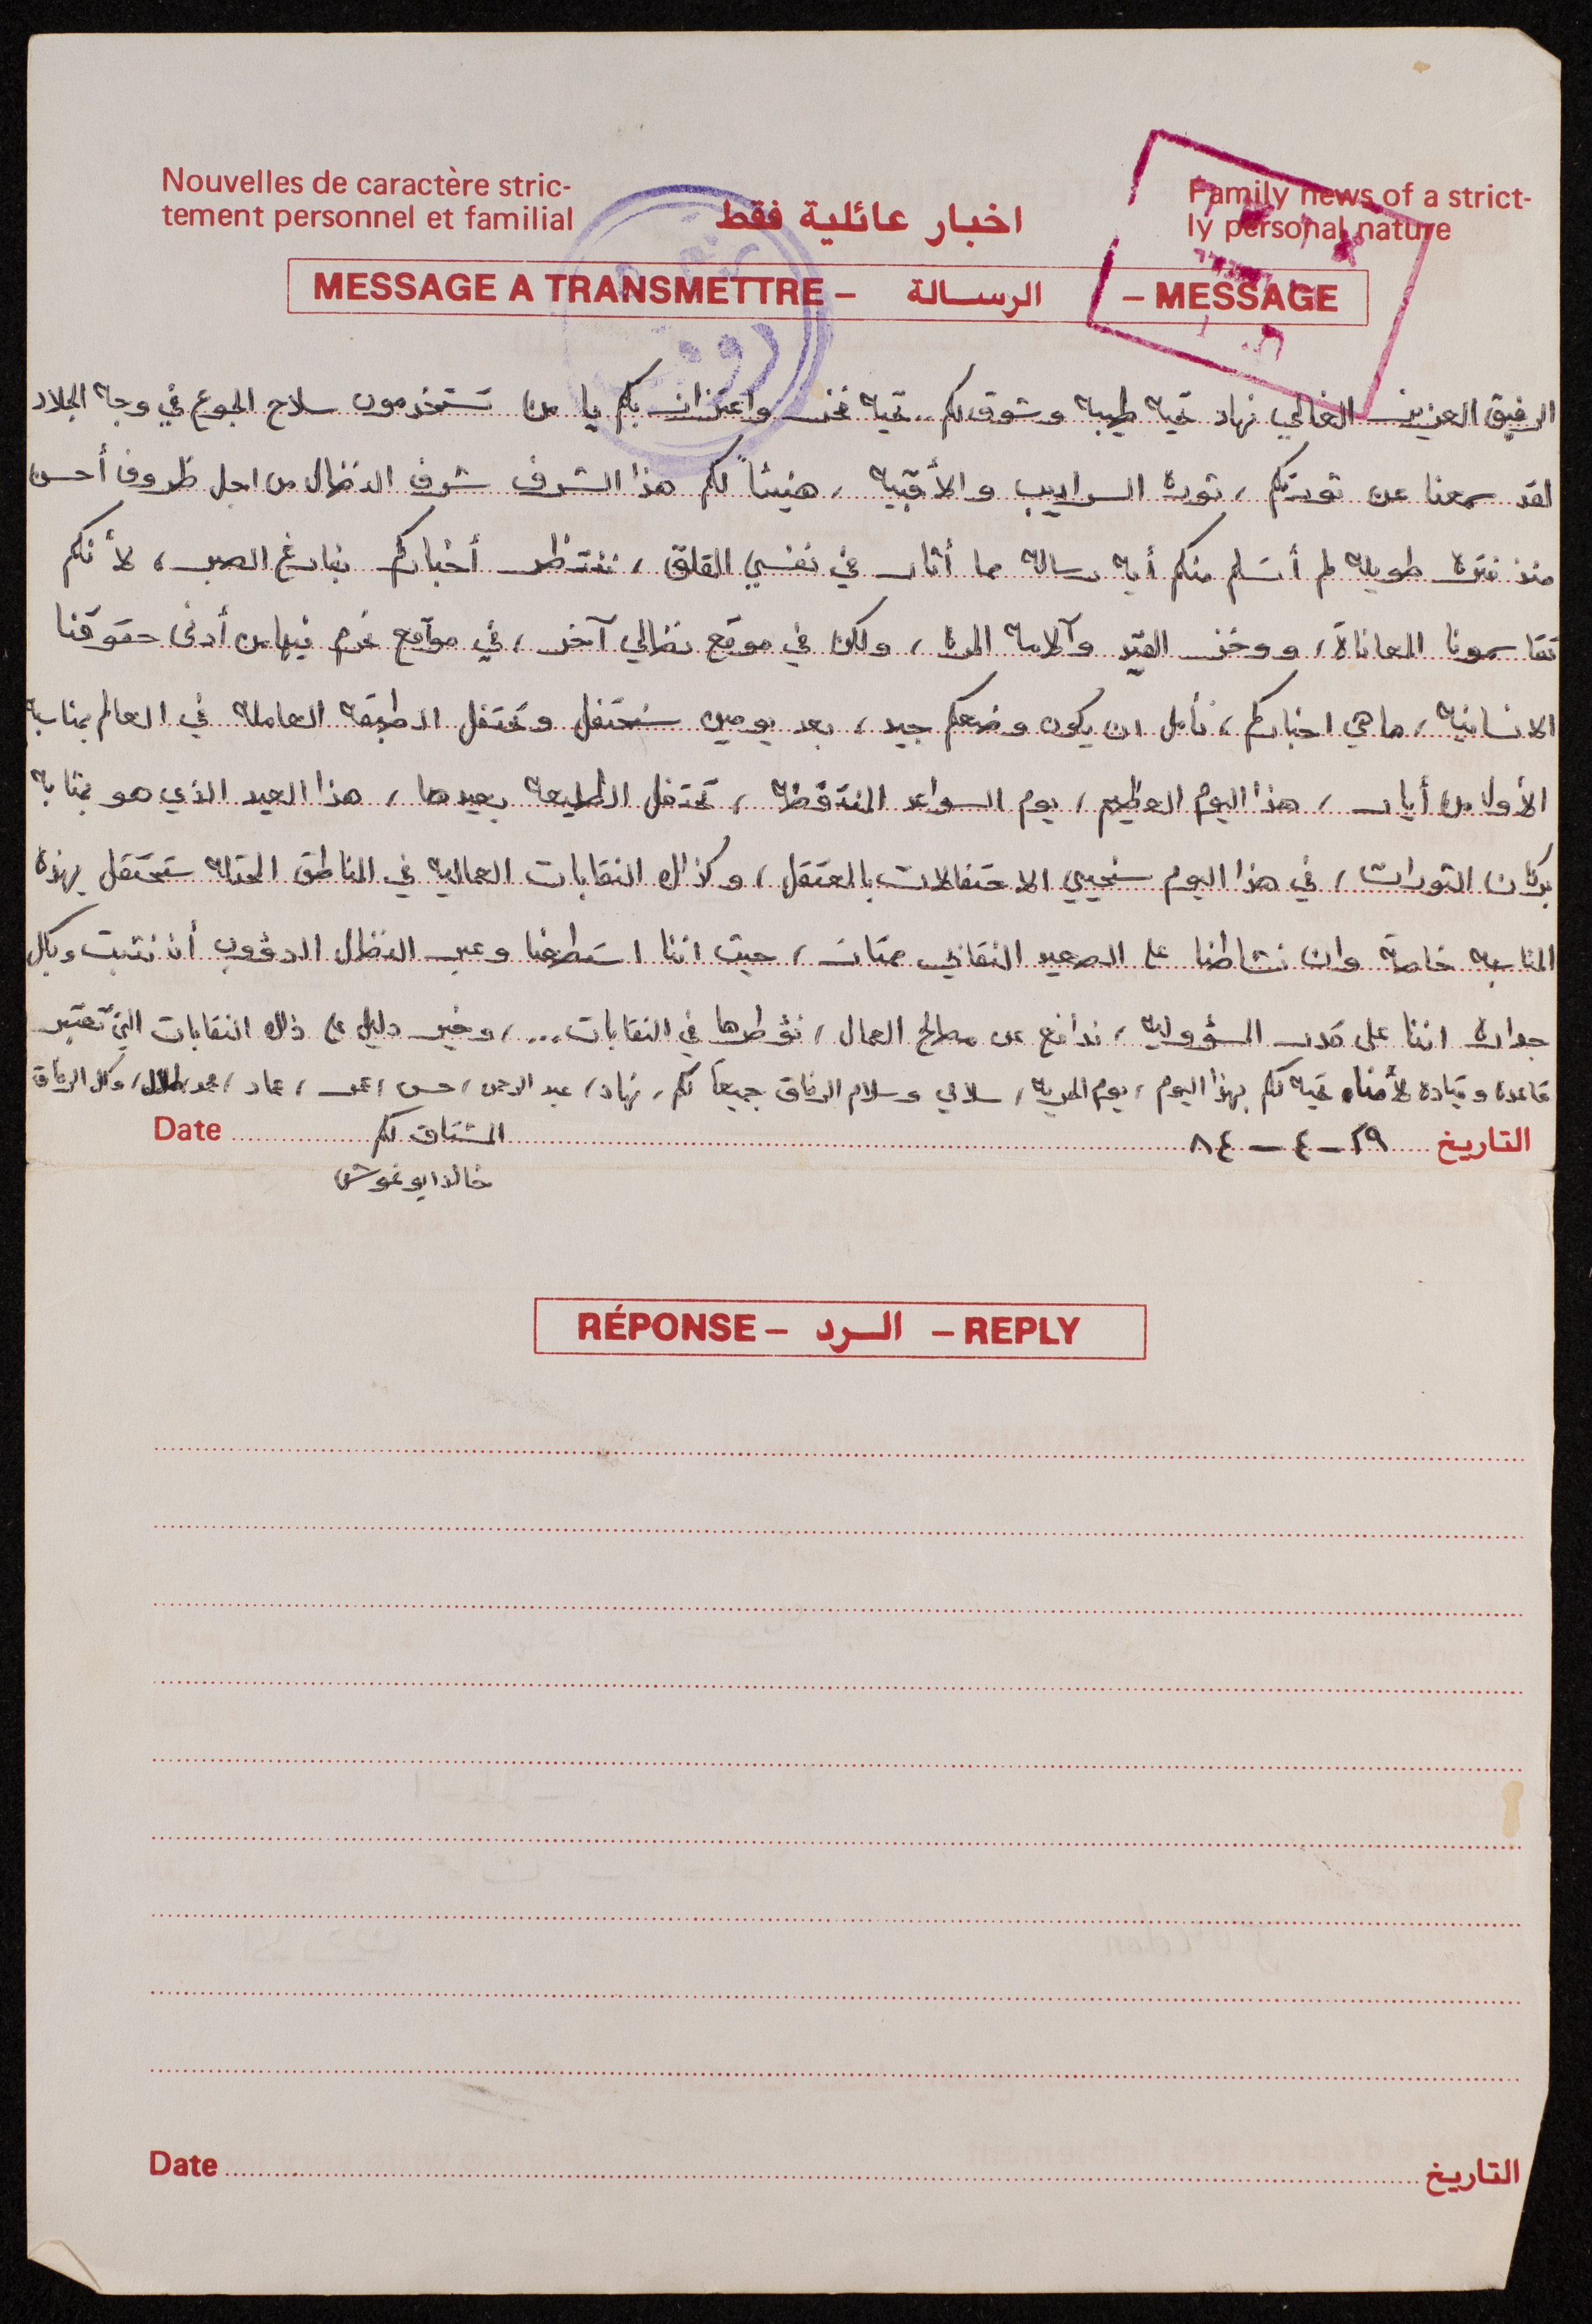 Nouvelles de caractère stric-
tement personnel et familial
اخبار عائلية فقط
Family news of a strict-
ly personal nature
MESSAGE A TRANSMETTRE – الرسالة – MESSAGE
الرفيق العزيز الغالي نهاد تحية طيبة وشوق لكم.. تحية فخر واعتزاز بكم يا من تستخدمون سلاح الجوع في وجه الجلاد
لقد سمعنا عن ثورتكم، ثورة السراديب والأقبية، هنيئاً لكم هذا الشرف شرف النضال من اجل ظروف أحسن
منذ فترة طويلة لم أتسلم منكم أية رسالة مما أثار في نفسي القلق، ننتظر أخباركم بفارغ الصبر، لأنكم
تقاسمونا المعاناة، ووخز القيد وآلامه المرة، ولكن في موقع نضالي آخر، في موقع نحرم فيها من أدنى حقوقنا
الانسانية، ما هي اخباركم، نأمل ان يكون وضعكم جيد، بعد يومين سنحتفل وتحتفل الطبقة العاملة في العالم بمناسبة
الأول من أيار، هذا اليوم العظيم، يوم السواعد المنتفضة، تحتفل الطليعة بعيدها، هذا العيد الذي هو بمثابة
بركان الثورات، في هذا اليوم سنحيي الاحتفالات بالمعتقل، وكذلك النقابات العمالية في المناطق المحتلة ستحتفل بهذه
المناسبة خاصة وان نشاطنا على الصعيد النقابي ممتاز، حيث اننا استطعنا وعبر النضال الدؤوب أن نثبت وبكل
جدارة اننا على قدر المسؤولية، ندافع عن مصالح العمال، نؤطرها في النقابات...، وخير دليل على ذلك النقابات التي تعتبر
قاعدة وقيادة لأمناء تحية لكم بهذا اليوم، يوم الحرية، سلامي وسلام الرفاق جميعاً لكم، نهاد، عبد الرحمن، حسن، عمر، عماد، محمد، طلال، وكل الرفاق
التاريخ ٢٩ – ٤ – ٨٤ المشتاق لكم Date
خالد ابو غوش
RÉPONSE – الرد – REPLY
التاريخ Date